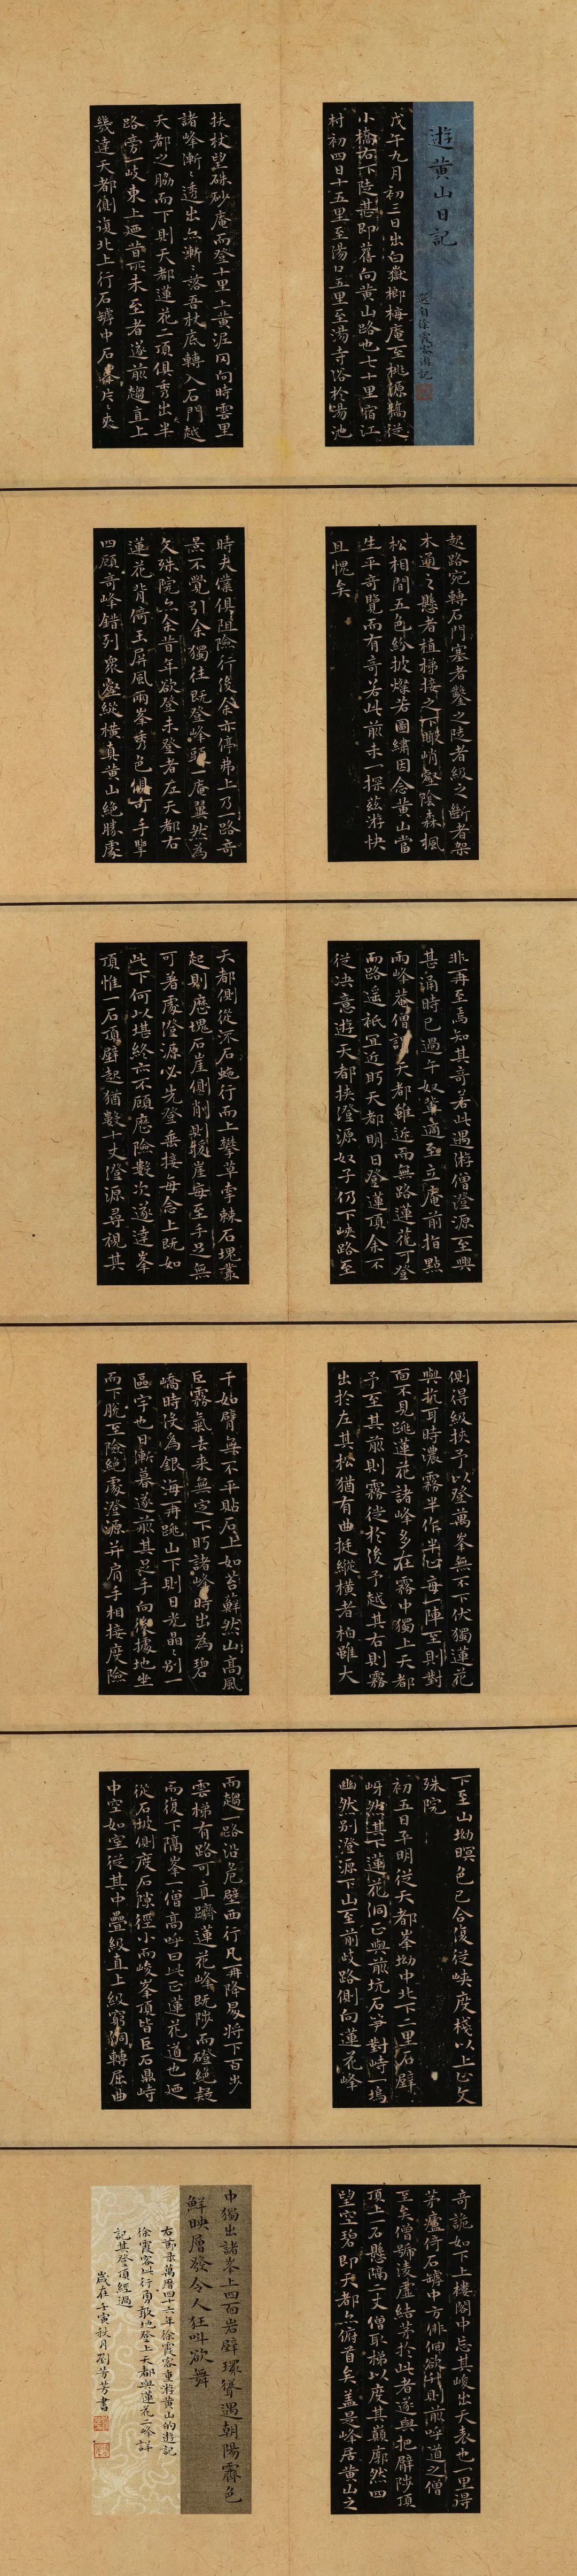 遊黃山日記
選自徐霞客游記
戊午九月初三日出白嶽榔梅庵至桃源橋從
小橋右下陡甚即舊向黃山路也七十里宿江
村初四日十五里至湯口五里至湯寺浴於湯池
扶杖望硃砂庵而登十里上黃泥岡向時雲里
諸峰漸〻透出亦漸〻落吾杖底轉入石門越
天都之脇而下則天都蓮花二頂俱秀出半
路旁一岐東上迺昔所未至者遂前趨直上
幾達天都側復北上行石罅中石峰片〻夾
起路宛轉石門塞者鑿之陡者級之斷者架
木通之懸者植梯接之下瞰峭壑陰森楓
松相間五色紛披燦若圖繡因念黃山當
生平奇覽而有奇若此前未一探茲游快
且愧矣
時夫僕俱阻險行後余亦停弗上乃一路奇
景不覺引余獨往既登峰頭一庵翼然為
文殊院亦余昔年欲登未登者左天都右
蓮花背倚玉屏風兩峯秀色俱可手擥
四顧奇峰錯列衆壑縱橫真黃山絕勝處
非再至焉知其奇若此遇游僧澄源至興
甚涌時已過午奴輩適至立庵前指點
兩峰菴僧謂天都雖近而無路蓮花可登
而路遥祗宜近盼天都明日登蓮頂余不
從决意遊天都挾澄源奴子仍下峽路至
天都側從流石蛇行而上攀草牽棘石塊叢
起則歷塊石崖側削則援崖每至手足無
可著處澄源必先登垂接每念上既如
此下何以堪終亦不顧歷險數次遂達峯
頂惟一石頂壁起猶數十丈澄源尋視其
側得級挾予以登萬峯無不下伏獨蓮花
與抗耳時濃霧半作半止每一陣至則對
面不見跳蓮花諸峰多在霧中獨上天都
予至其前則霧徙於後予越其右則霧
出於左其松猶有曲挺縱橫者柏雖大
干如臂無不平貼石上如苔蘚然山高風
巨霧氣去來無定下盼諸峰時出為碧
嶠時沒為銀海再跳山下則日光晶〻別一
區宇也日漸暮遂前其足手向後據地坐
而下脫至險絕處澄源并肩手相接度險
下至山坳暝色已合復從峽度棧以上止文
殊院
初五日平明從天都峯坳中北下二里石壁
岈然其下蓮花洞正與前坑石笋對峙一塢
幽然別澄源下山至前歧路側向蓮花峰
而趨一路沿危壁西行凡再降昜將下百步
雲梯有路可直躋蓮花峰既陟而磴絕疑
而復下隔峯一僧高呼曰此正蓮花道也迺
從石坡側度石隙徑小而峻峯頂皆巨石鼎峙
中空如室從其中疊級直上級窮洞轉屈曲
奇詭如下上樓閣中忘其峻出天表也一里得
茅廬倚石罅中方徘徊欲升則前呼道之僧
至矣僧號凌虛結茅於此者遂與把臂陟頂
頂上一石懸隔二丈僧取梯以度其巔廓然四
望空碧即天都亦俯首矣蓋是峰居黃山之
中獨出諸峯上四面岩壁環聳遇朝陽霽色
鮮映層發令人狂叫欲舞
右節录萬曆四十六年徐霞客重游黃山的遊記
徐霞客此行勇敢地登上天都與蓮花二峰詳
記其登頂經過
歲在壬寅秋月劉芳芳書